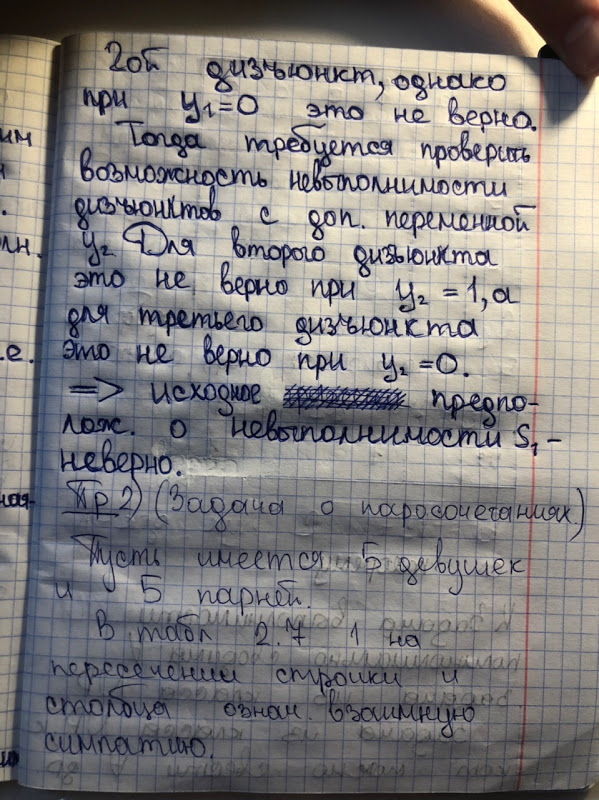 2ой дизъюнкт, однако
при y₁=0 это не верно.
Тогда требуется проверить
возможность невыполнимости
дизъюнктов с доп. переменной
y₂ Для второго дизъюнкта
это не верно при y₂ = 1, а
для третьего дизъюнкта
это не верно при y₂ =0.
=> исходное предпо-
лож. о невыполнимости S₁ -
неверно.
Пр 2) (Задача о паросочетаниях)
Пусть имеется 5 девушек
и 5 парней.
В табл 2.7 1 на
пересечении строки и
столбца означ. взаимную
симпатию.